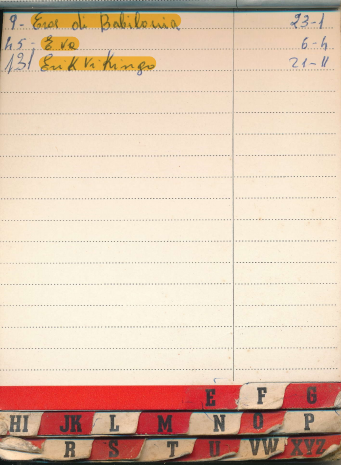 9- Eros di Babilonia 23-1
45- Eva 6-4
131 Erik Vikingo 21-11
E F G
HI JK L M N O P
R S T U VW XYZ